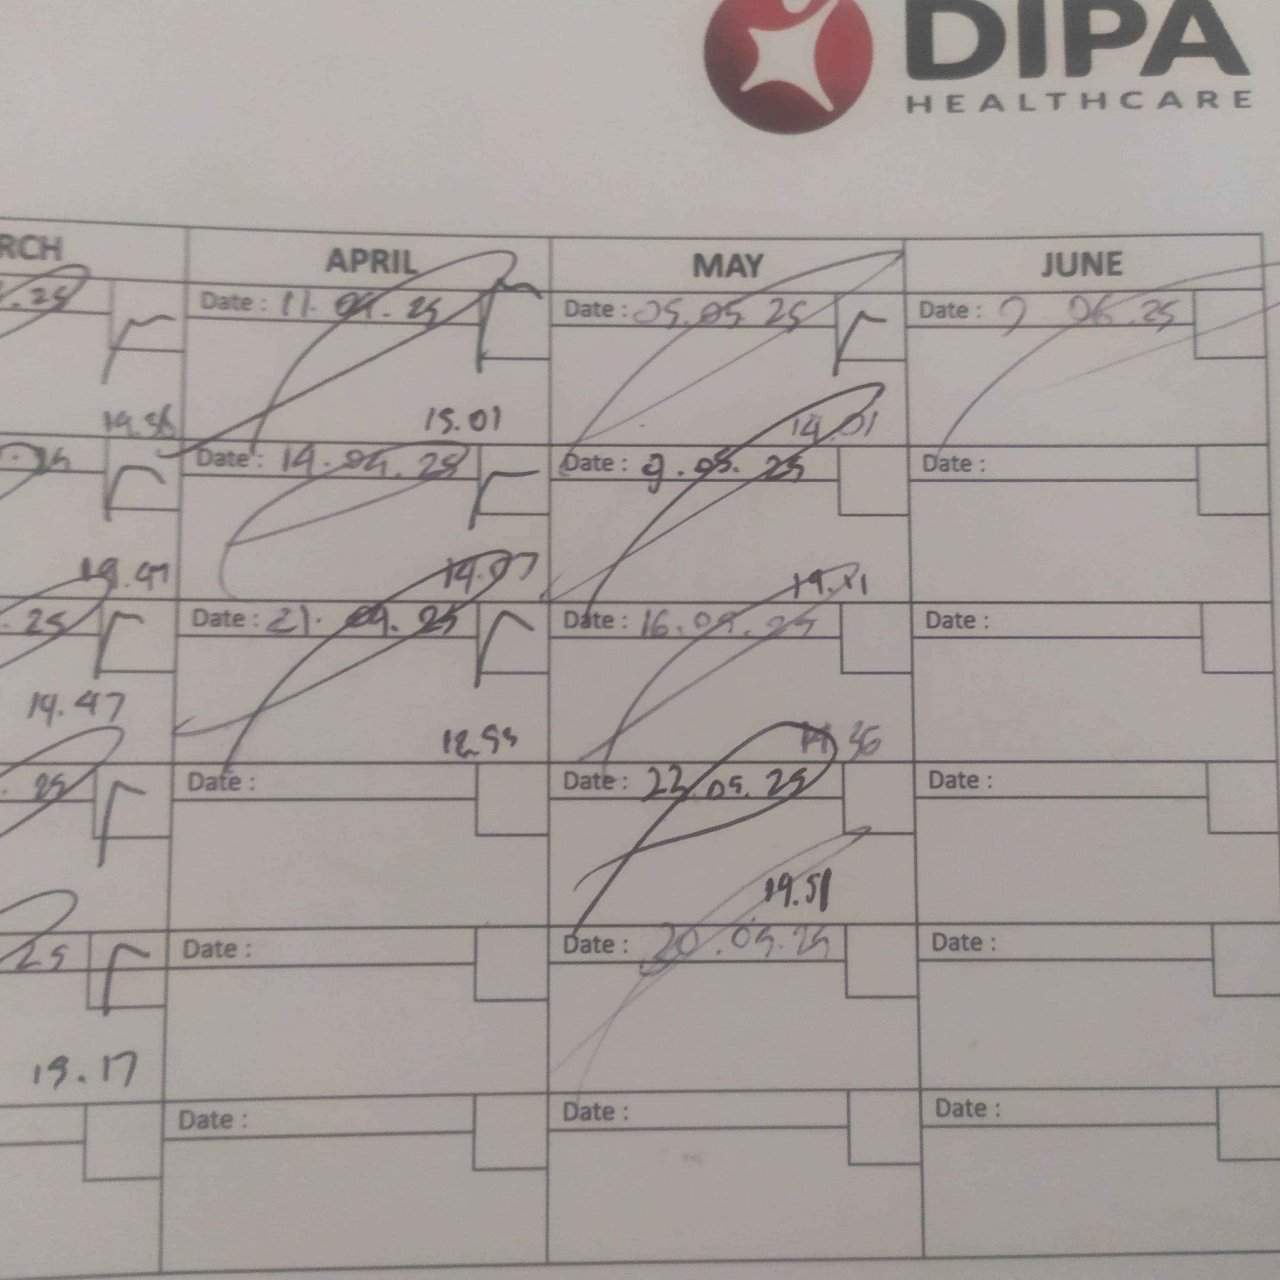 DIPA
HEALTHCARE
RCH APRIL MAY JUNE
.25 Date : 11.04.25 Date : 05.05.25 Date : 06.25
14.36 15.01 14.01
Date : 14.04.25 Date : 9.05.25 Date :
14.47 14.07 14.11
.25 Date : 21.04.25 Date : 16.05.25 Date :
14.47 12.55 14.36
.25 Date : Date : 22.05.25 Date :
14.51
25 Date : Date : 20.05.25 Date :
15.17
Date : Date : Date :